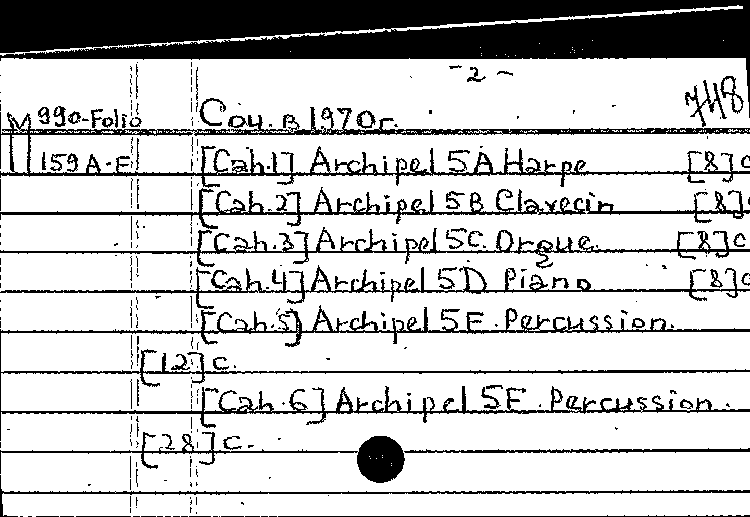 - 2 -
748
М 990-Folio Соч. в 1970г.
159 A-E [Cah.1] Archipel 5A Harpe [8] c
[Cah.2] Archipel 5B Clavecin [8] c
[Cah.3] Archipel 5C. Orgue. [8] c
[Cah.4] Archipel 5D Piano [8] c
[Cah.5] Archipel 5E. Percussion.
[12] c.
[Cah.6] Archipel 5E. Percussion.
[28] c.